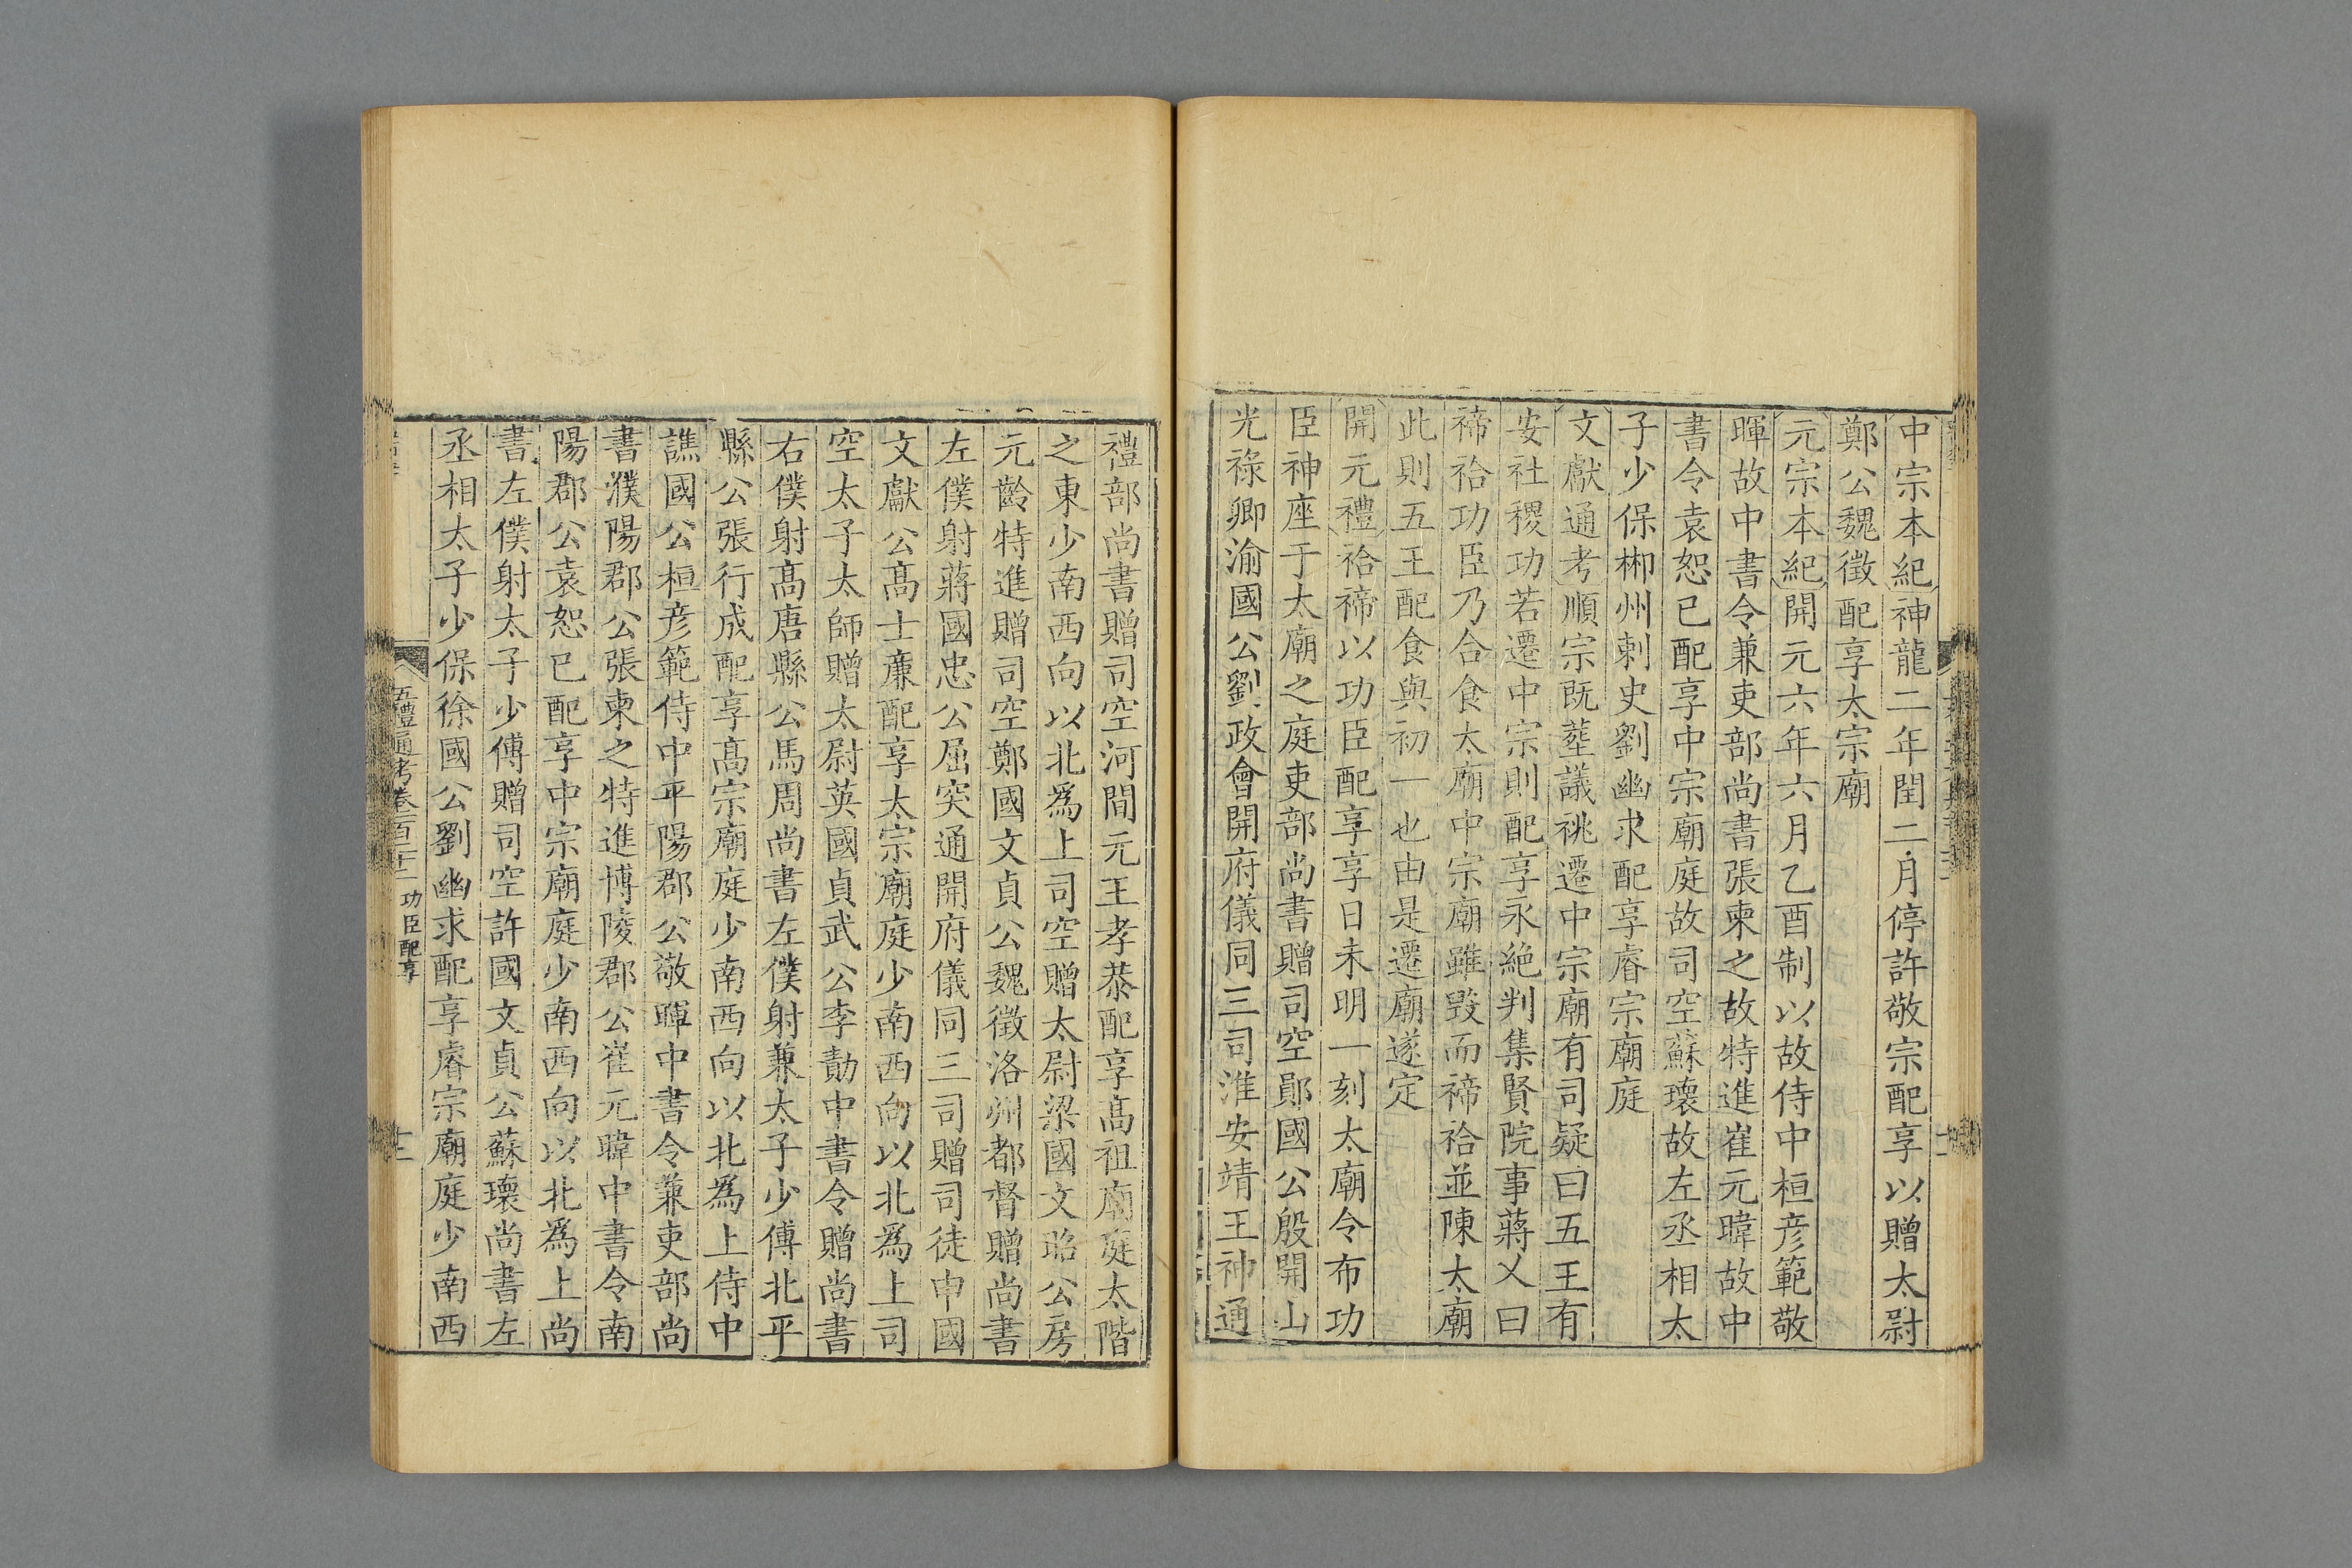 中宗本紀神龍二年閏二月停許敬宗配享以贈太尉
鄭公魏徵配享太宗廟
元宗本紀開元六年六月乙酉制以故侍中桓彦範敬
暉故中書令兼吏部尚書張柬之故特進崔元暐故中
書令袁恕已配享中宗廟庭故司空蘇瓌故左丞相太
子少保郴州刺史劉幽求配享睿宗廟庭
文獻通考順宗既葬議祧遷中宗廟有司疑曰五王有
安社稷功若遷中宗則配享永絶判集賢院事蔣乂曰
禘祫功臣乃合食太廟中宗廟雖毀而禘祫並陳太廟
此則五王配食與初一也由是遷廟遂定
開元禮祫禘以功臣配享享日未明一刻太廟令布功
臣神座于太廟之庭吏部尚書贈司空鄖國公殷開山
光祿卿渝國公劉政會開府儀同三司淮安靖王神通
禮部尚書贈司空河間元王孝恭配享髙祖廟庭太階
之東少南西向以北為上司空贈太尉梁國文昭公房
元齡特進贈司空鄭國文貞公魏徵洛州都督贈尚書
左僕射蔣國忠公屈突通開府儀同三司贈司徒申國
文獻公髙士廉配享太宗廟庭少南西向以北為上司
空太子太師贈太尉英國貞武公李勣中書令贈尚書
右僕射髙唐縣公馬周尚書左僕射兼太子少傅北平
縣公張行成配享髙宗廟庭少南西向以北為上侍中
譙國公桓彦範侍中平陽郡公敬暉中書令兼吏部尚
書濮陽郡公張柬之特進博陵郡公崔元暐中書令南
陽郡公袁恕已配享中宗廟庭少南西向以北為上尚
書左僕射太子少傅贈司空許國文貞公蘇瓌尚書左
丞相太子少保徐國公劉幽求配享睿宗廟庭少南西
五禮通考卷一百二十二 功臣配享